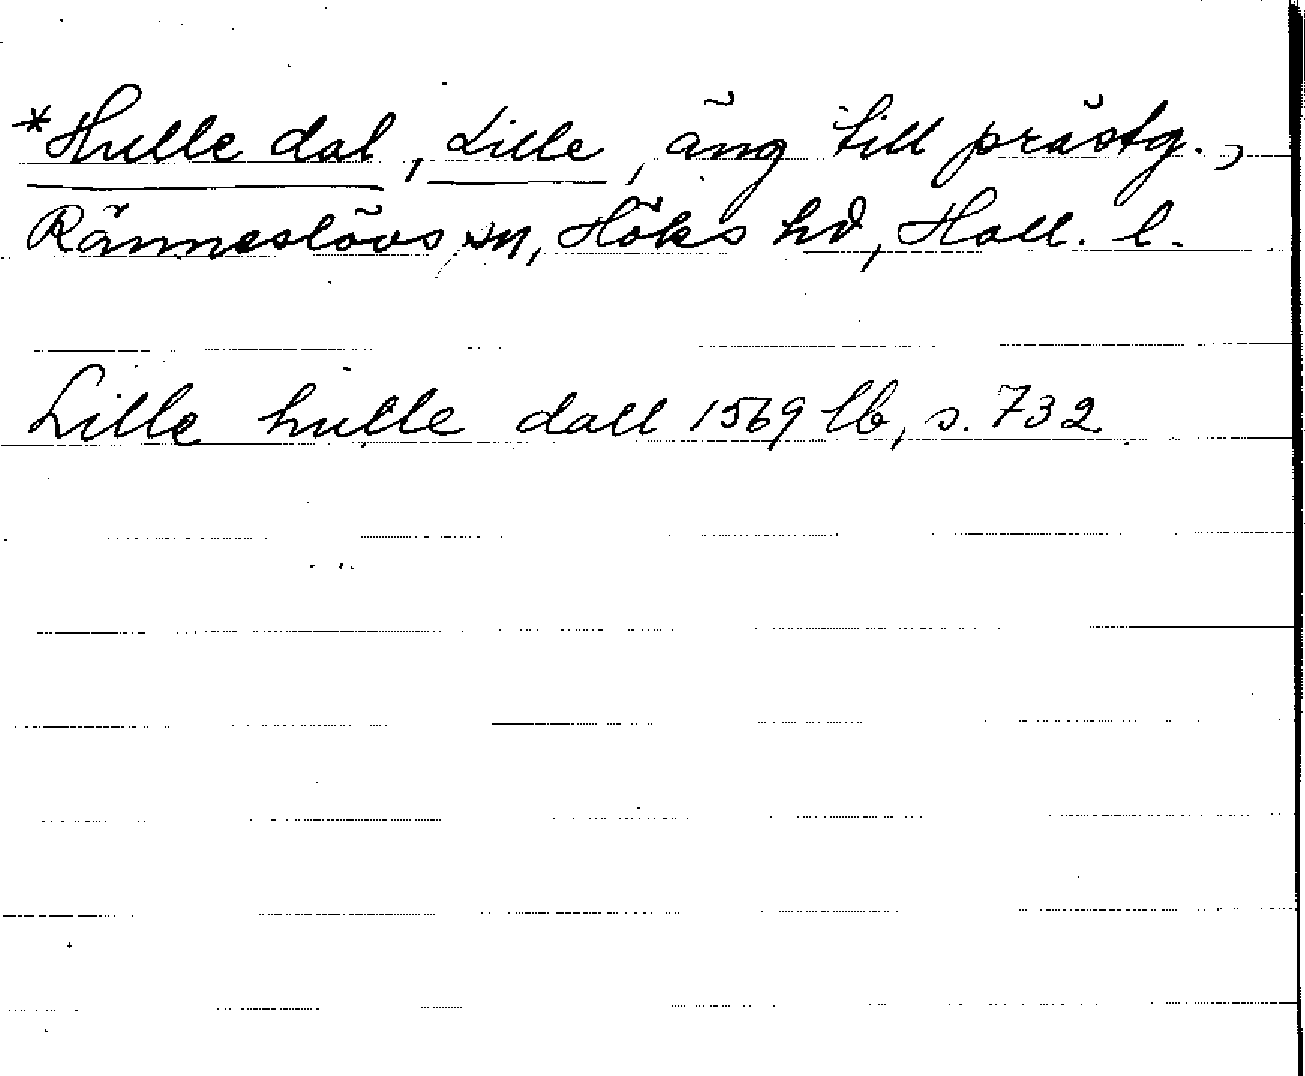 *Hulle dal, Lille, äng till prästg.,
Ränneslövs sn, Höks hd, Hall. l.
Lille hulle dall 1569 lb, s. 732